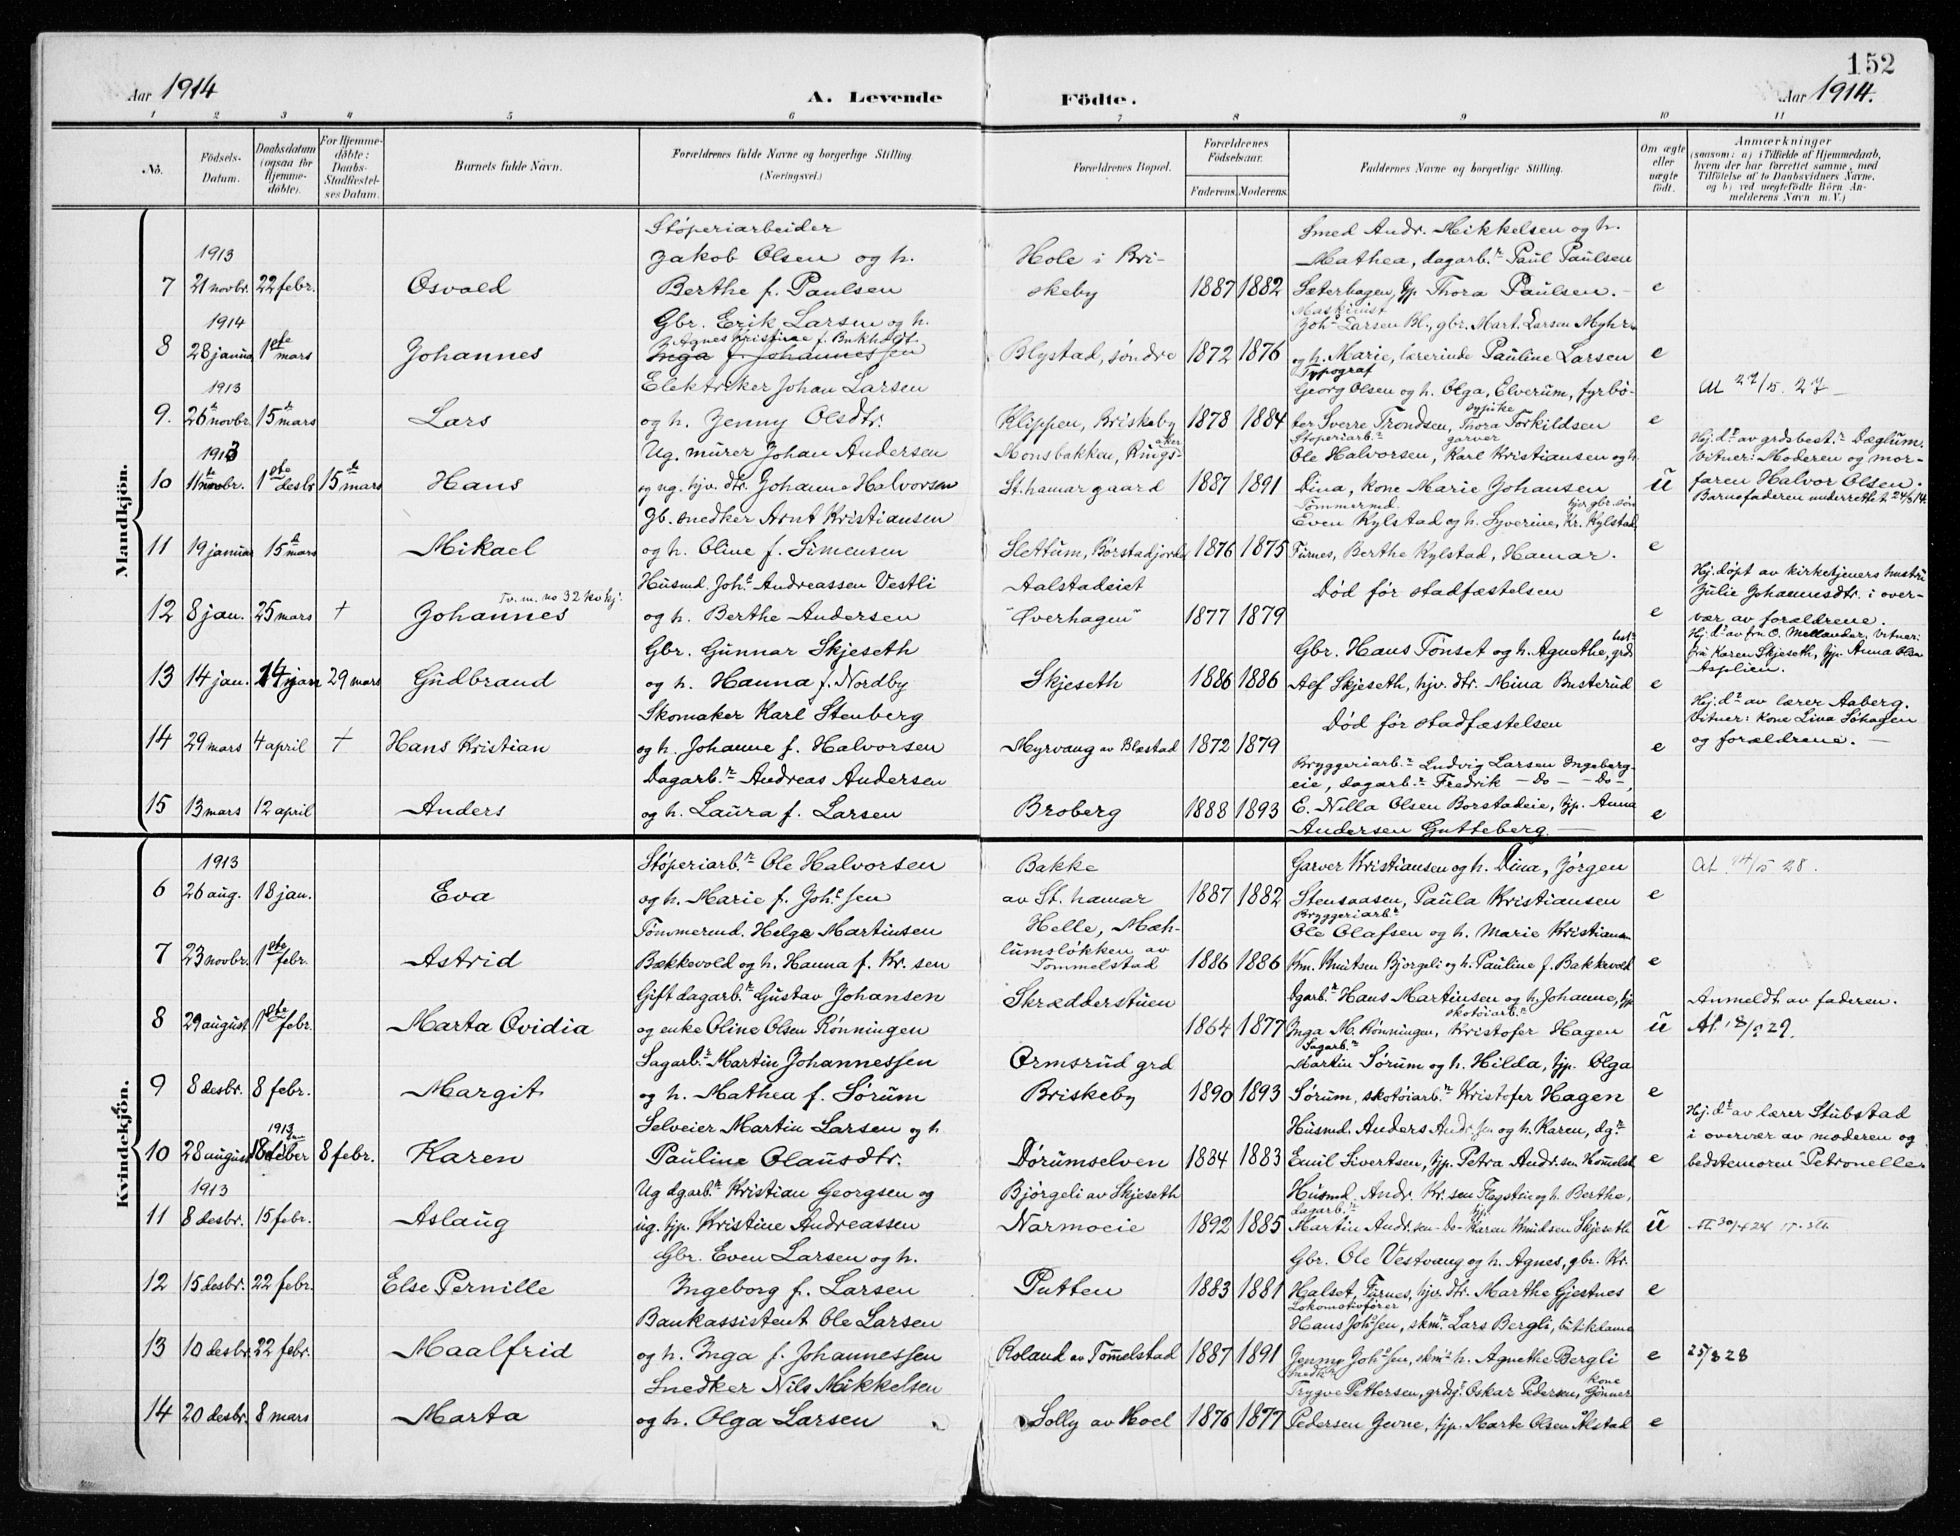 152
Aar 1914
A. Levende
Födte.
Aar 1914.
1 2 3 4 5 6 7 8 9 10 11
No.
Födsels-Datum.
Daabsdatum (ogsaa for Hjemme-döbte).
For Hjemme-döbte: Daabs-Stadfæstel-ses Datum.
Barnets fulde Navn.
Forældrenes fulde Navne og borgerlige Stilling. (Næringsvei.)
Forældrenes Bopæl.
Forældrenes Födselsaar.
Faderens. Moderens.
Faddernes Navne og borgerlige Stilling.
Om ægte eller uægte födt.
Anmærkninger
(saasom: a) i Tilfælde af Hjemmedaab,
hvem der har forrettet samme, med
Tilföielse af to Daabsvidners Navne,
og b) ved uægtefödte Börn An-
melderens Navn m. V.)
Mandkjön.
Støperiarbeider
Smed Andr. Mikkelsen og h.
1913 Jakob Olsen og h. Hole i Bri- Mathea, dagarb.r Paul Paulsen
7 21 novbr. 22 febr. Osvald Berthe f. Paulsen skeby 1887 1882 Sæterhagen, tjp. Thora Paulsen. e
1914 Gbr. Erik Larsen og h. Maskinist
Agnes Kristine f. Bukholdt Joh.s Larsen Bl., gbr. Mart. Larsen Myhr
8 28 januar 1ste mars Johannes Inga f. Johannessen Blystad, søndre 1872 1876 og h. Marie, lærerinde Pauline Larsen e
1913 Elektriker Johan Larsen Typograf
Georg Olsen og h. Olga, Elverum, fyrbø- At 27/5. 27
9. 26 novbr. 15 mars Lars og h. Jenny Olsdtr. Klippen, Briskeby 1878 1884 ter Sverre Trondsen, sypike Thora Torkildsen e
1913 Ug. murer Johan Andersen Monsbakken, Rings-aker Støperiarb.r garver Hj. d.t av grdsbest.r Dæglum.
Ole Halvorsen, Karl Kristiansen og h. Vitner: Moderen og mor-
10 11 novbr. 1ste desbr 15 mars Hans og ug. hjv. dtr. Johanne Halvorsen St. hamar gaard 1887 1891 Dina, kone Marie Johansen u faren Halvor Olsen.
Barnefaderen underrettet 24/3 14.
Gb. snedker Arnt Kristiansen Tømmermd. hjv. gbr. søn
Even Kylstad og h. Syverine, Kr. Kylstad
11 19 januar 15 mars Mikael og h. Oline f. Simensen Slettum, Børstadjordet 1876 1875 Furnes, Berthe Kylstad, Hamar. e
Husmd. Joh.s Andreassen Vestli Aalstadeiet Død før stadfæstelsen Hj. døpt av kirketjeners hustru
Tv. m. no 32 kvkj. Julie Johannesdtr. i over-
12 8 jan. 25 mars † Johannes og h. Berthe Andersen "Øverhagen" 1877 1879 e vær av forældrene.
Gbr. Gunnar Skjeseth Gbr. Hans Tønset og h. Agnethe, grds Hj. d.t av fru O. Mellander, Vitner:
fru Karen Skjeseth, tjp. Anna Olsen
13 14 jan. 24 jan 29 mars Gudbrand og h. Hanna f. Nordby Skjeseth 1886 1886 Alf Skjeseth, hjv. dtr. Mina Busterud e Asplien.
Skomaker Karl Stenberg Død før stadfæstelsen Hj. d.t av lærer Aaberg.
Vitner: Kone Lina Søhagen
14 29 mars 4 april † Hans Kristian og h. Johanne f. Halvorsen Myrvang av Blæstad 1872 1879 e og forældrene.
Dagarb.r Andreas Andersen Bryggeriarb.r Ludvig Larsen Ingeberg-
eie, dagarb.r Fredrik — Do — — Do —,
15 13 mars 12 april Anders og h. Laura f. Larsen Broberg 1888 1893 E. Nilla Olsen Borstadeie, tjp. Anna e
Andersen Gutteberg.
Kvindekjön.
1913 Støperiarb.r Ole Halvorsen Bakke Garver Kristiansen og h. Dina, Jørgen At 14/5 28.
6 26 aug. 18 jan. Eva og h. Marie f. Joh.s sen av St. hamar 1887 1882 Stensaasen, Paula Kristiansen e
Tømmermd. Helge Martinsen Helle, Mæh- Bryggeriarb.r
Ole Olafsen og h. Marie Kristians
7 23 novbr. 1ste febr. Astrid Bækkevold og h. Hanna f. Kr. sen lumsløkken av Tommelstad 1886 1886 Km. Knutsen Bjørgeli og h. Pauline f. Bakkevold e
Gift dagarb.r Gustav Johansen Skrædderstuen Dgarb.r Hans Martinsen og h. Johanne, tjp. Anmeldt av faderen.
8 29 august 1ste febr. Marta Ovidia og enke Oline Olsen Rønningen 1864 1877 Inga M. Rønningen, skotøiarb.r Kristofer Hagen u At 18/ 29.
Sagarb.r Martin Johannessen Ormsrud grd Sagarb.r
Martin Sørum og h. Hilda, tjp. Olga
9 8 desbr. 8 febr. Margit og h. Mathea f. Sørum Briskeby 1890 1893 Sørum, skotøiarb.r Kristofer Hagen e
1913 Selveier Martin Larsen og h. Husmd. Anders Andr.sen og h. Karen, dg.r Hj. d.t av lærer Stubstad
i overvær av moderen og
10 28 august 18 8 febr. Karen Pauline Olausdtr. Dørumselven 1884 1883 Emil Sivertsen, tjp. Petra Andr.sen e bedstemoren Petronelle.
1913 Ug dgarb.r Kristian Georgsen og Bjørgeli av Skjeseth Husmd. Andr. Kr. sen Flagsteie og h. Berthe,
dagarb.r tjp.
11 8 desbr. 15 febr. Aslaug ug. tjp. Kristine Andreassen Narmoeie 1892 1885 Martin Andr.sen - Do - Karen Knudsen Skjeseth u
Gbr. Even Larsen og h. Gbr. Ole Vestvang og h. Agnes, gbr. Kr.
12 15 desbr. 22 febr. Else Pernille Ingeborg f. Larsen Putten 1883 1881 Halset, Furnes, hjv. dtr. Marthe Gjestnes e
Bankassistent Ole Larsen Lokomotivfører
Hans Joh.s sen, skm.r Lars Bergli, butikdame
13 10 desbr. 22 febr. Maalfrid og h. Inga f. Johannessen Roland av Tommelstad 1887 1891 Jenny Joh.s sen, skm.r h. Agnethe Bergli e 25/3 28
Snedker Nils Mikkelsen Snedk.r kone
Trygve Pettersen, grdsj. Oskar Pedersen, Gunner
14 20 desbr. 8 mars Marta og h. Olga Larsen Solly av Hoel 1876 1877 Pedersen Jevne, tjp. Marte Olsen Alstad e